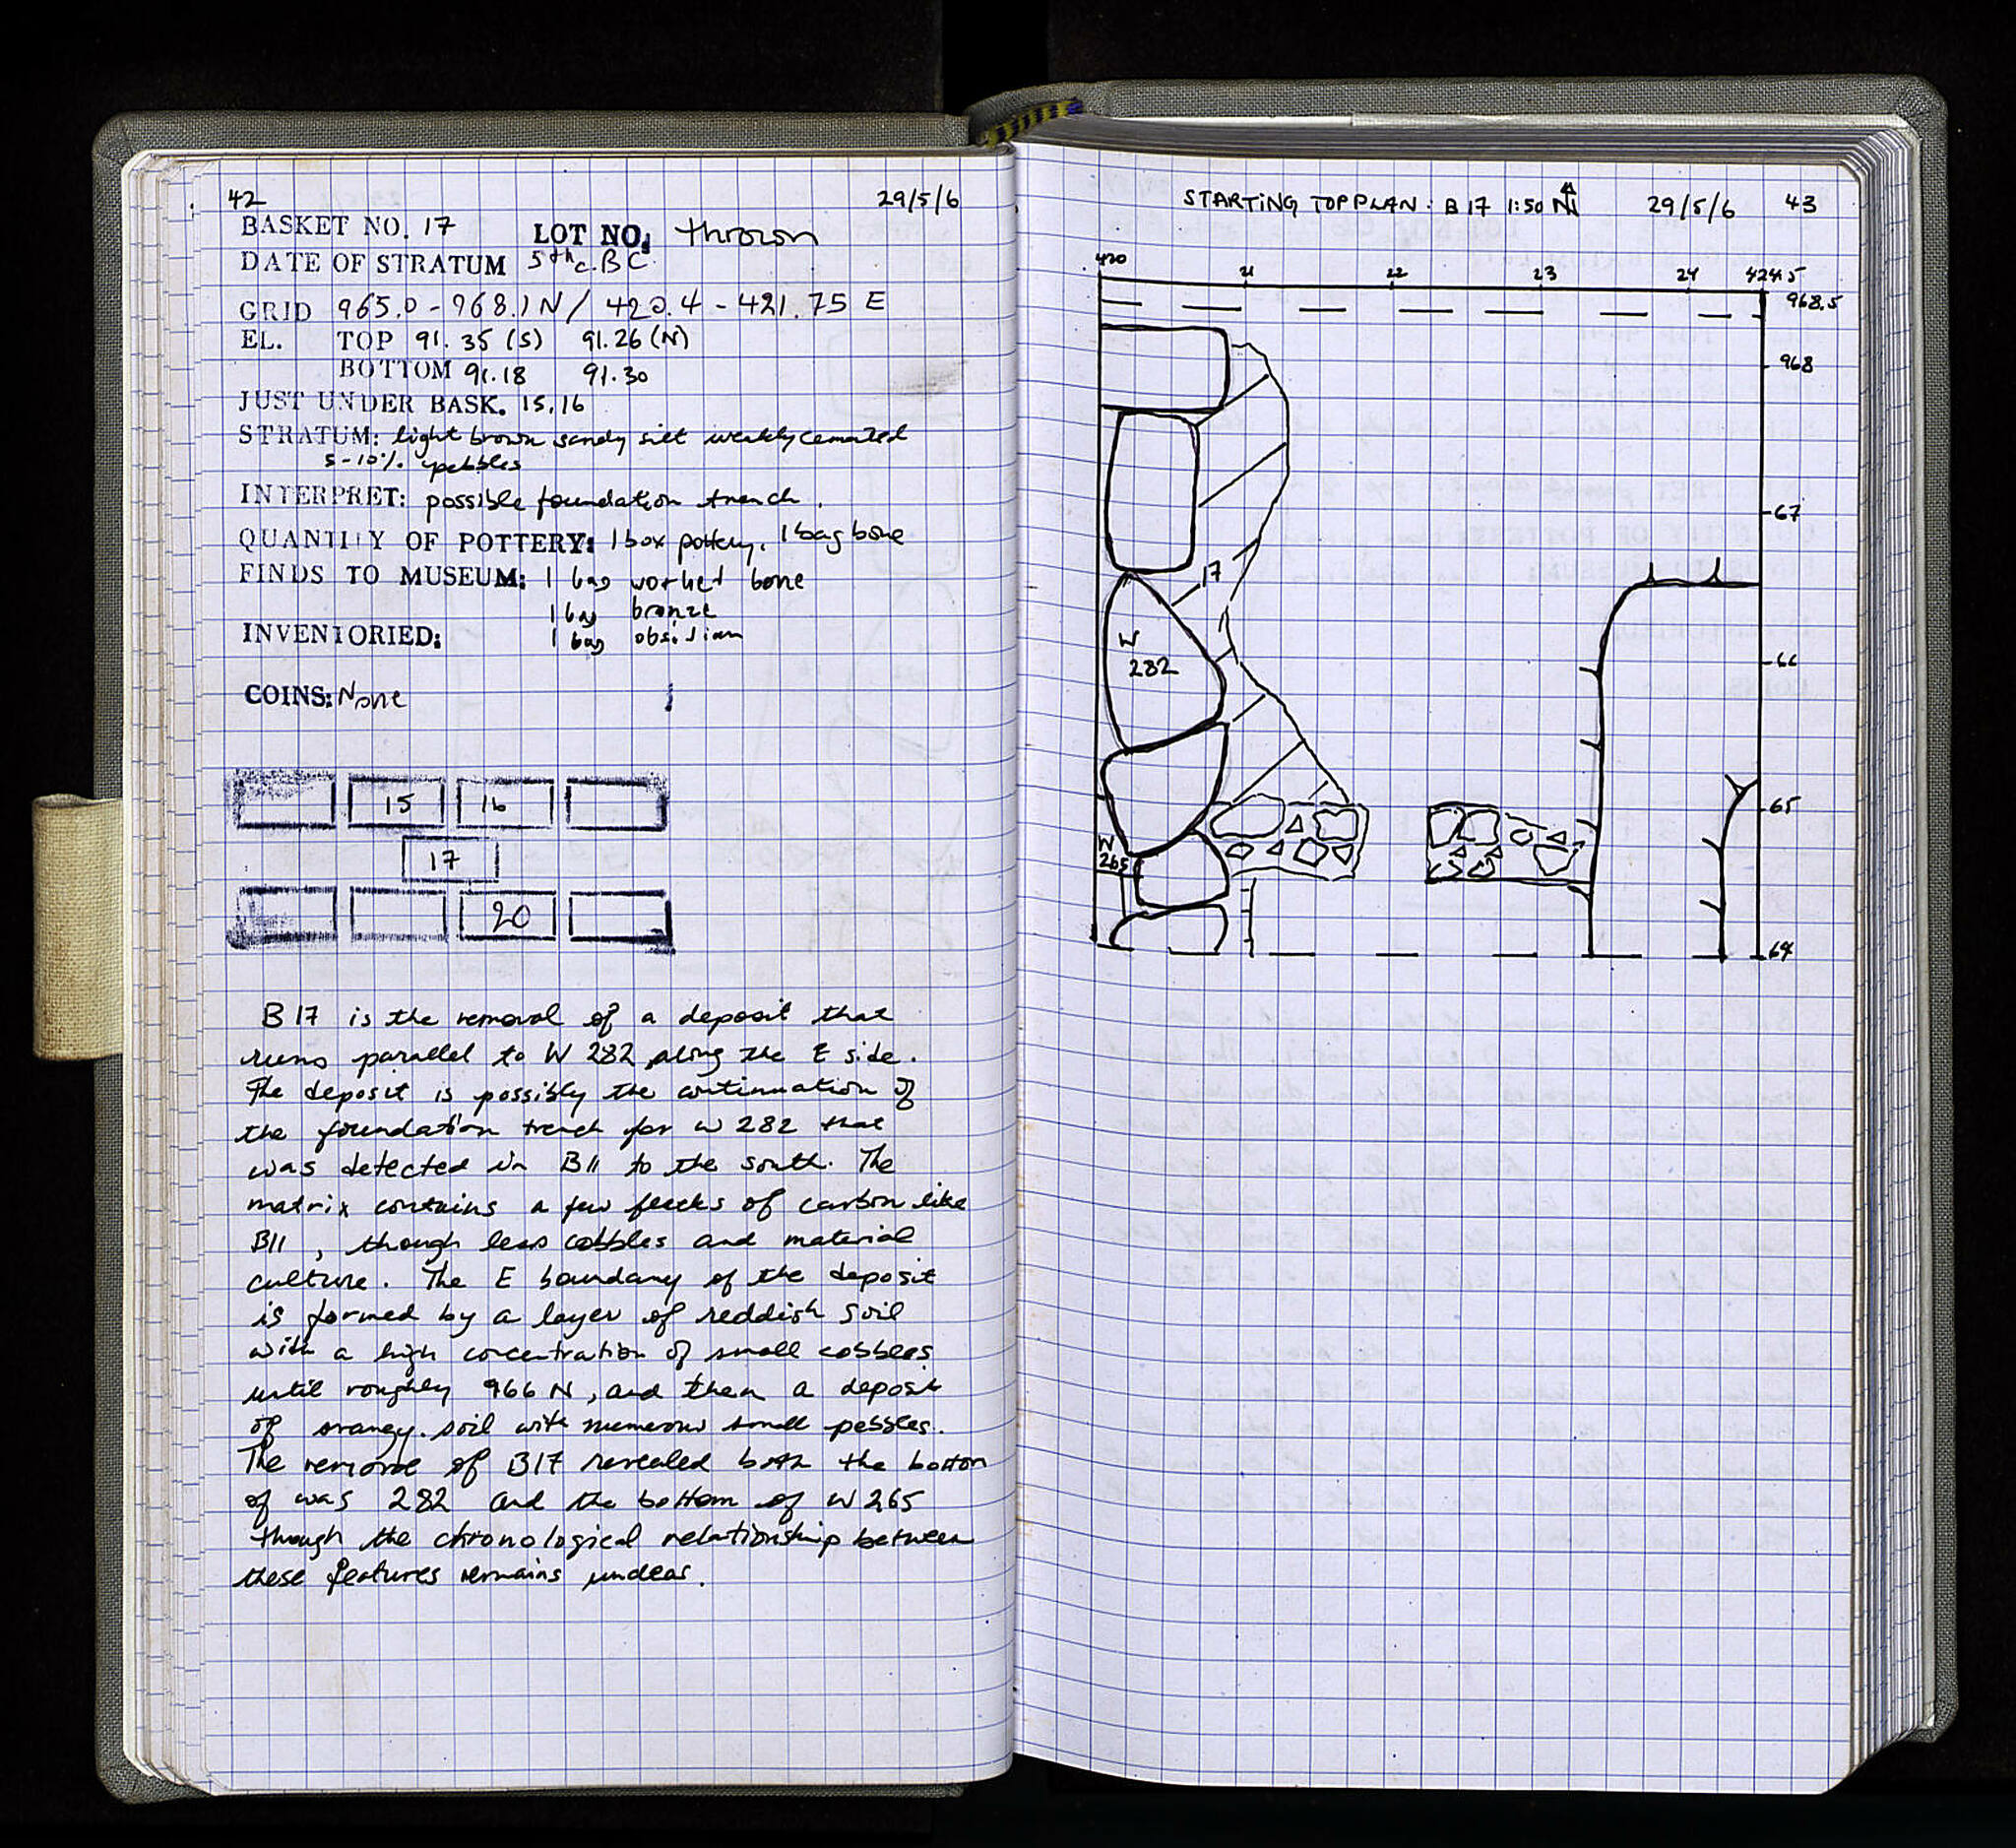 42 29/5/6
BASKET NO. 17 LOT NO. thrown
DATE OF STRATUM 5th c. BC.
GRID 965.0 - 968.1 N / 420.4 - 421.75 E
EL. TOP 91.35 (S) 91.26 (N)
BOTTOM 91.18 91.30
JUST UNDER BASK. 15, 16
STRATUM: light brown sandy silt weakly cemented
5-10% pebbles
INTERPRET: possible foundation trench.
QUANTITY OF POTTERY: 1 box pottery. 1 bag bone
FINDS TO MUSEUM: 1 bag worked bone
1 bag bronze
INVENTORIED: 1 bag obsidian
COINS: None
15 16
17
20
B 17 is the removal of a deposit that
runs parallel to W 282 along the E side.
The deposit is possibly the continuation of
the foundation trench for W 282 that
was detected in B11 to the south. The
matrix contains a few flecks of carbon like
B11, though less cobbles and material
culture. The E boundary of the deposit
is formed by a layer of reddish soil
with a high concentration of small cobbles
until roughly 966 N, and then a deposit
of orangy soil with numerous small pebbles.
The removal of B17 revealed both the bottom
of was 282 and the bottom of W 265
though the chronological relationship between
these features remains unclear.
STARTING TOP PLAN: B 17 1:50 N 29/5/6 43
420 21 22 23 24 424.5
968.5
968
67
17
W
282
66
65
W
265
64